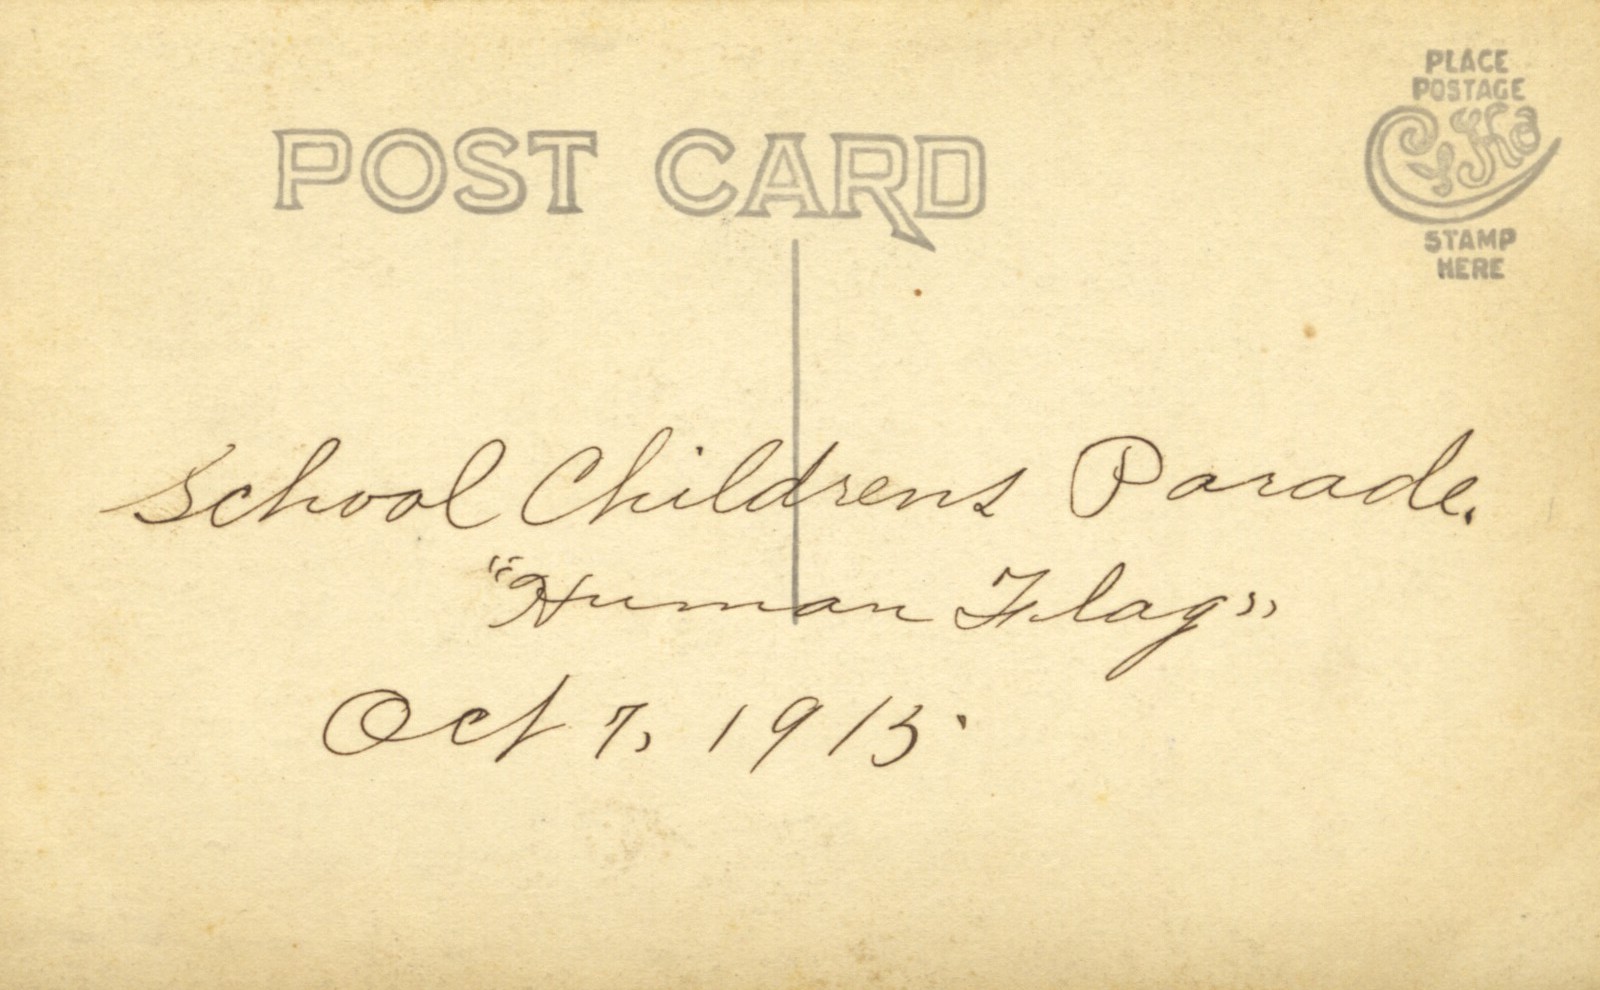 PLACE
POSTAGE
CYKO
STAMP
HERE
POST CARD
School Childrens Parade.
"Human Flag"
Oct 7, 1915.